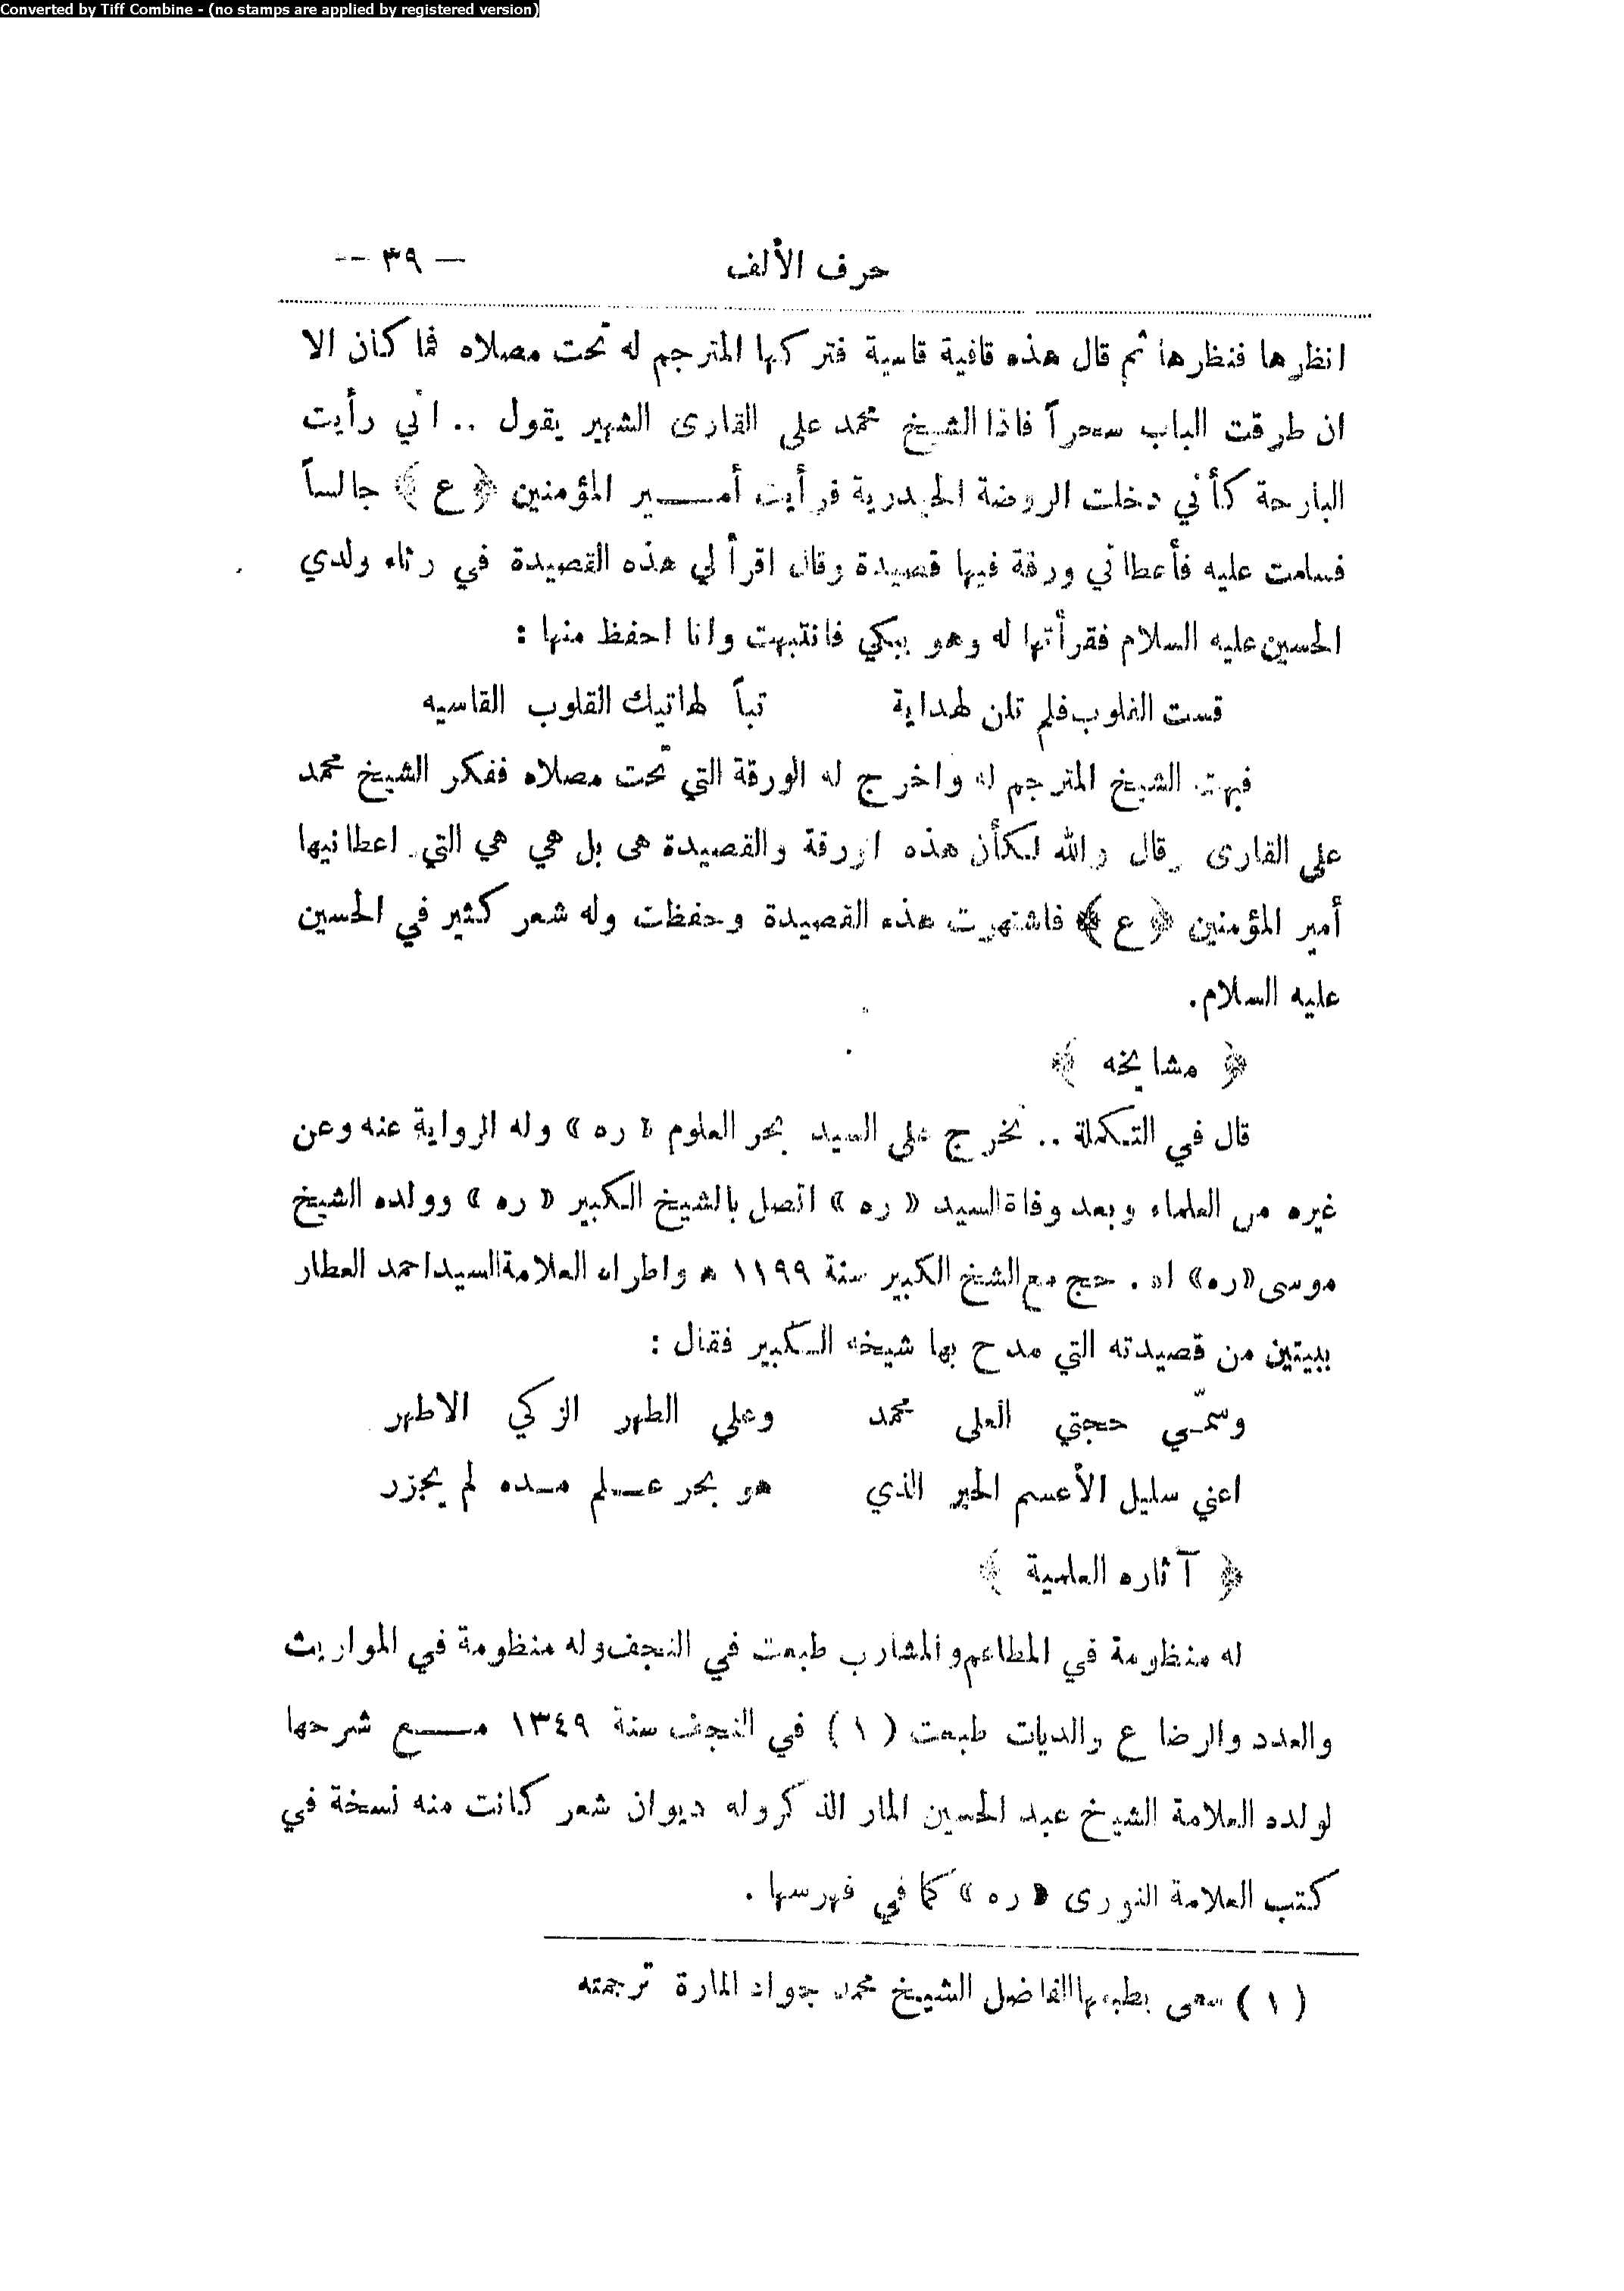 Converted by Tiff Combine - (no stamps are applied by registered version)
حرف الألف — ٣٩ —
انظرها فنظرها ثم قال هذه قافية قاسية فتركها المترجم له تحت مصلاه فما كان الا
ان طرقت الباب سحراً فاذا الشيخ محمد على القارى الشهير يقول .. اني رأيت
البارحة كأني دخلت الروضة الحيدرية فرأيت أمير المؤمنين ﴿ ع ﴾ جالساً
فسلمت عليه فأعطاني ورقة فيها قصيدة وقال اقرأ لي هذه القصيدة في رثاء ولدي
الحسين عليه السلام فقرأتها له وهو يبكي فانتبهت وانا احفظ منها :
قست القلوب فلم تلن لهداية تباً لهاتيك القلوب القاسيه
فبهت الشيخ المترجم له واخرج له الورقة التي تحت مصلاه ففكر الشيخ محمد
على القارى وقال والله لكأن هذه الورقة والقصيدة هى بل هي هي التي اعطانيها
أمير المؤمنين ﴿ ع ﴾ فاشتهرت هذه القصيدة وحفظت وله شعر كثير في الحسين
عليه السلام.
﴿ مشايخه ﴾
قال في التكملة .. تخرج على السيد بحر العلوم « ره » وله الرواية عنه وعن
غيره من العلماء وبعد وفاة السيد « ره » اتصل بالشيخ الكبير « ره » وولده الشيخ
موسى «ره» اه . حج مع الشخ الكبير سنة ١١٩٩ ه واطراه العلامة السيد احمد العطار
ببيتين من قصيدته التي مدح بها شيخه الكبير فقال :
وسمّي حجتي العلى محمد وعلي الطهر الزكي الاطهر
اعني سليل الأعسم الحبر الذي هو بحر علم مده لم يجزر
﴿ آثاره العلمية ﴾
له منظومة في المطاعم والمشارب طبعت في النجف وله منظومة في المواريث
والعدد والرضاع والديات طبعت ( ١ ) في النجف سنة ١٣٤٩ مع شرحها
لولده العلامة الشيخ عبد الحسين المار الذكر وله ديوان شعر كانت منه نسخة في
كتب العلامة النورى « ره » كما في فهرسها .
( ١ ) سعى بطبعها الفاضل الشيخ محمد جواد المارة ترجمته